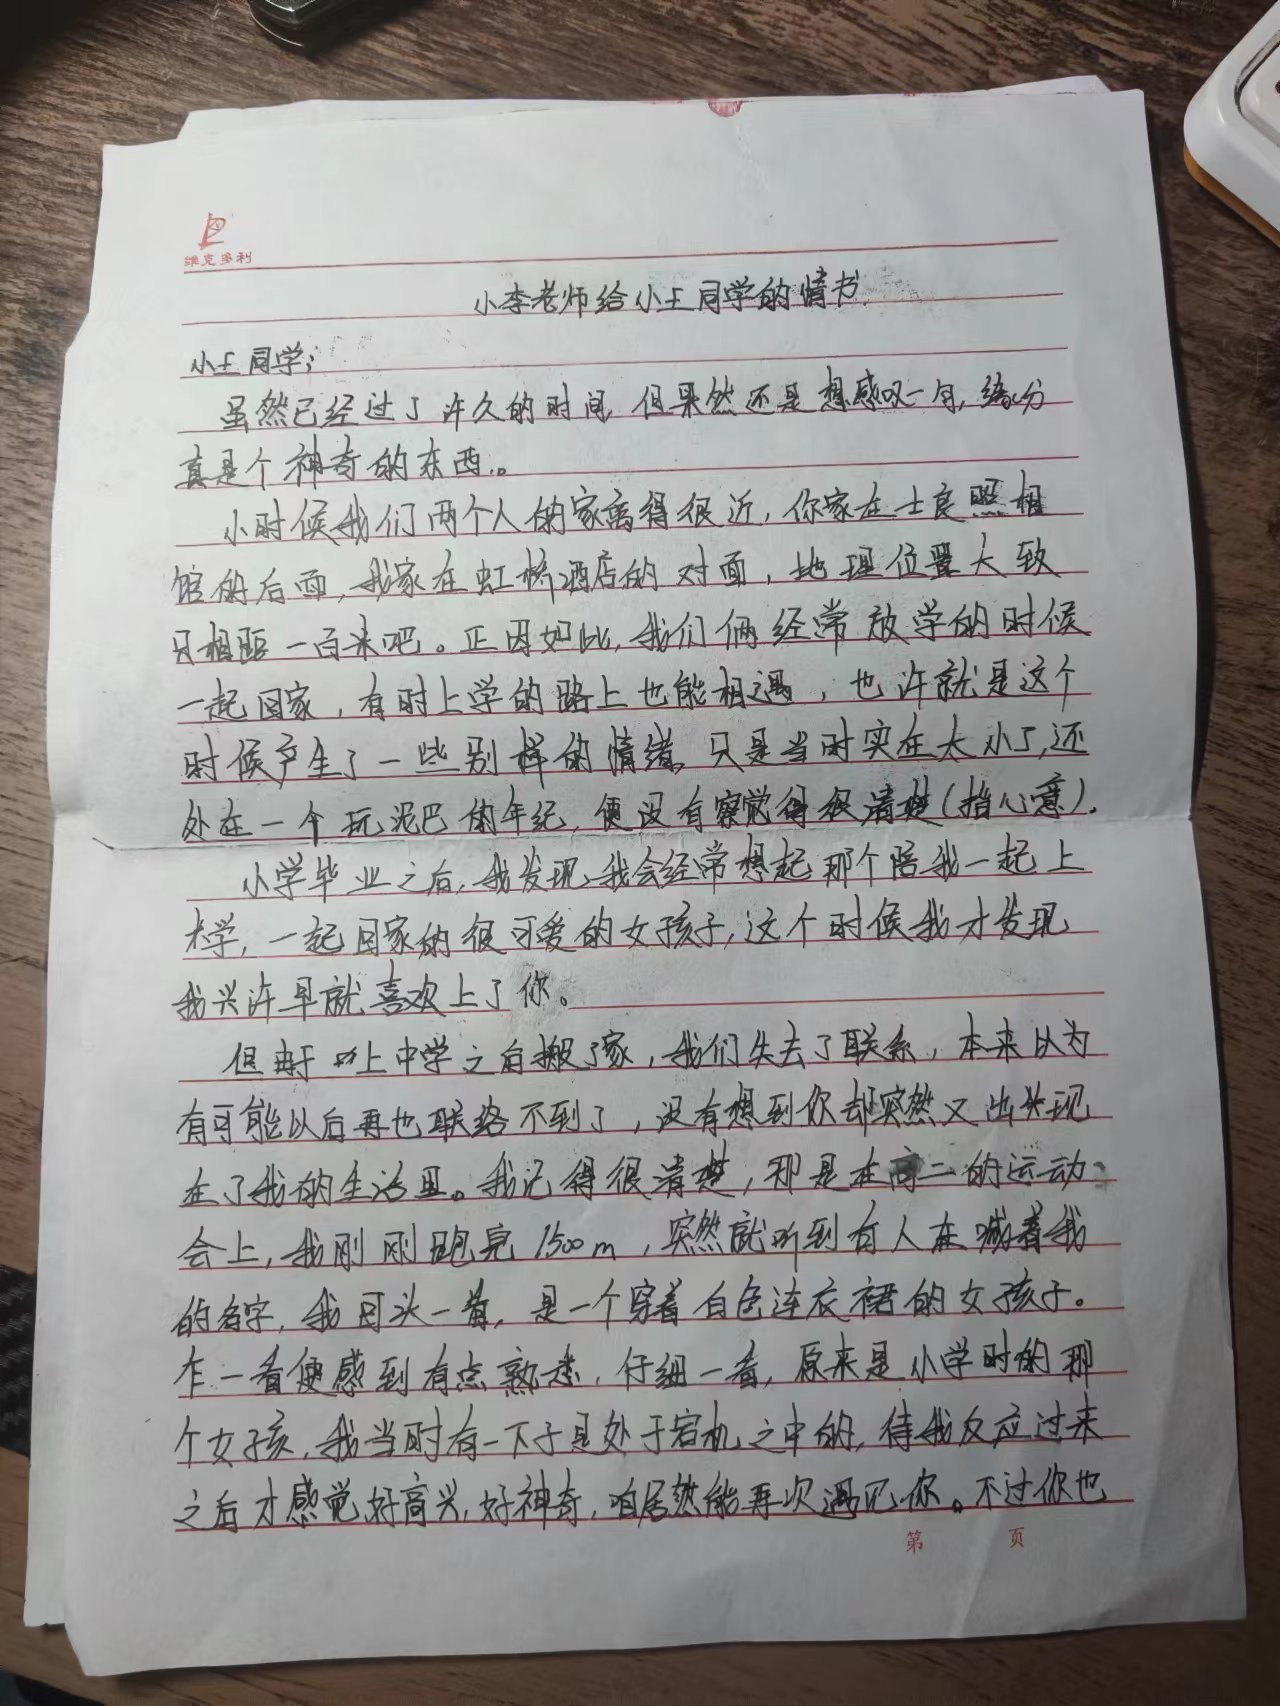 维克多利
小李老师给小王同学的情书
小王同学：
虽然已经过了许久的时间，但果然还是想感叹一句，缘分
真是个神奇的东西。
小时候我们两个人的家离得很近，你家在士良照相
馆的后面，我家在虹桥酒店的对面，地理位置大致
只相距一百米吧。正因如此，我们俩经常放学的时候
一起回家，有时上学的路上也能相遇，也许就是这个
时候产生了一些别样的情绪，只是当时实在太小了，还
处在一个玩泥巴的年纪，便没有察觉得很清楚（指心意）。
小学毕业之后，我发现，我会经常想起那个陪我一起上
学，一起回家的很可爱的女孩子，这个时候我才发现
我兴许早就喜欢上了你。
但由于上中学之后搬了家，我们失去了联系，本来以为
有可能以后再也联络不到了，没有想到你却突然又出现
在了我的生活里。我记得很清楚，那是在高二的运动
会上，我刚刚跑完1500m，突然就听到有人在喊着我
的名字，我回头一看，是一个穿着白色连衣裙的女孩子。
乍一看便感到有点熟悉，仔细一看，原来是小学时的那
个女孩，我当时有一下子是处于宕机之中的，待我反应过来
之后才感觉好高兴，好神奇，咱居然能再次遇见你。不过你也
第 页